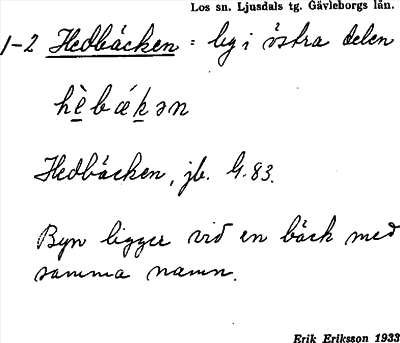 Los sn. Ljusdals tg. Gävleborgs län.
1-2 Hedbäcken = lg i östra delen
hè̱bǽḵən
Hedbäcken, jb. G. 83.
Byn ligger vid en bäck med
samma namn.
Erik Eriksson 1933